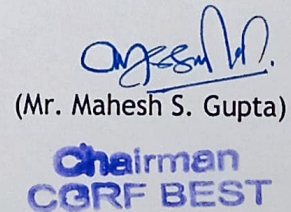 (Mr. Mahesh S. Gupta)
Chairman
CGRF BEST